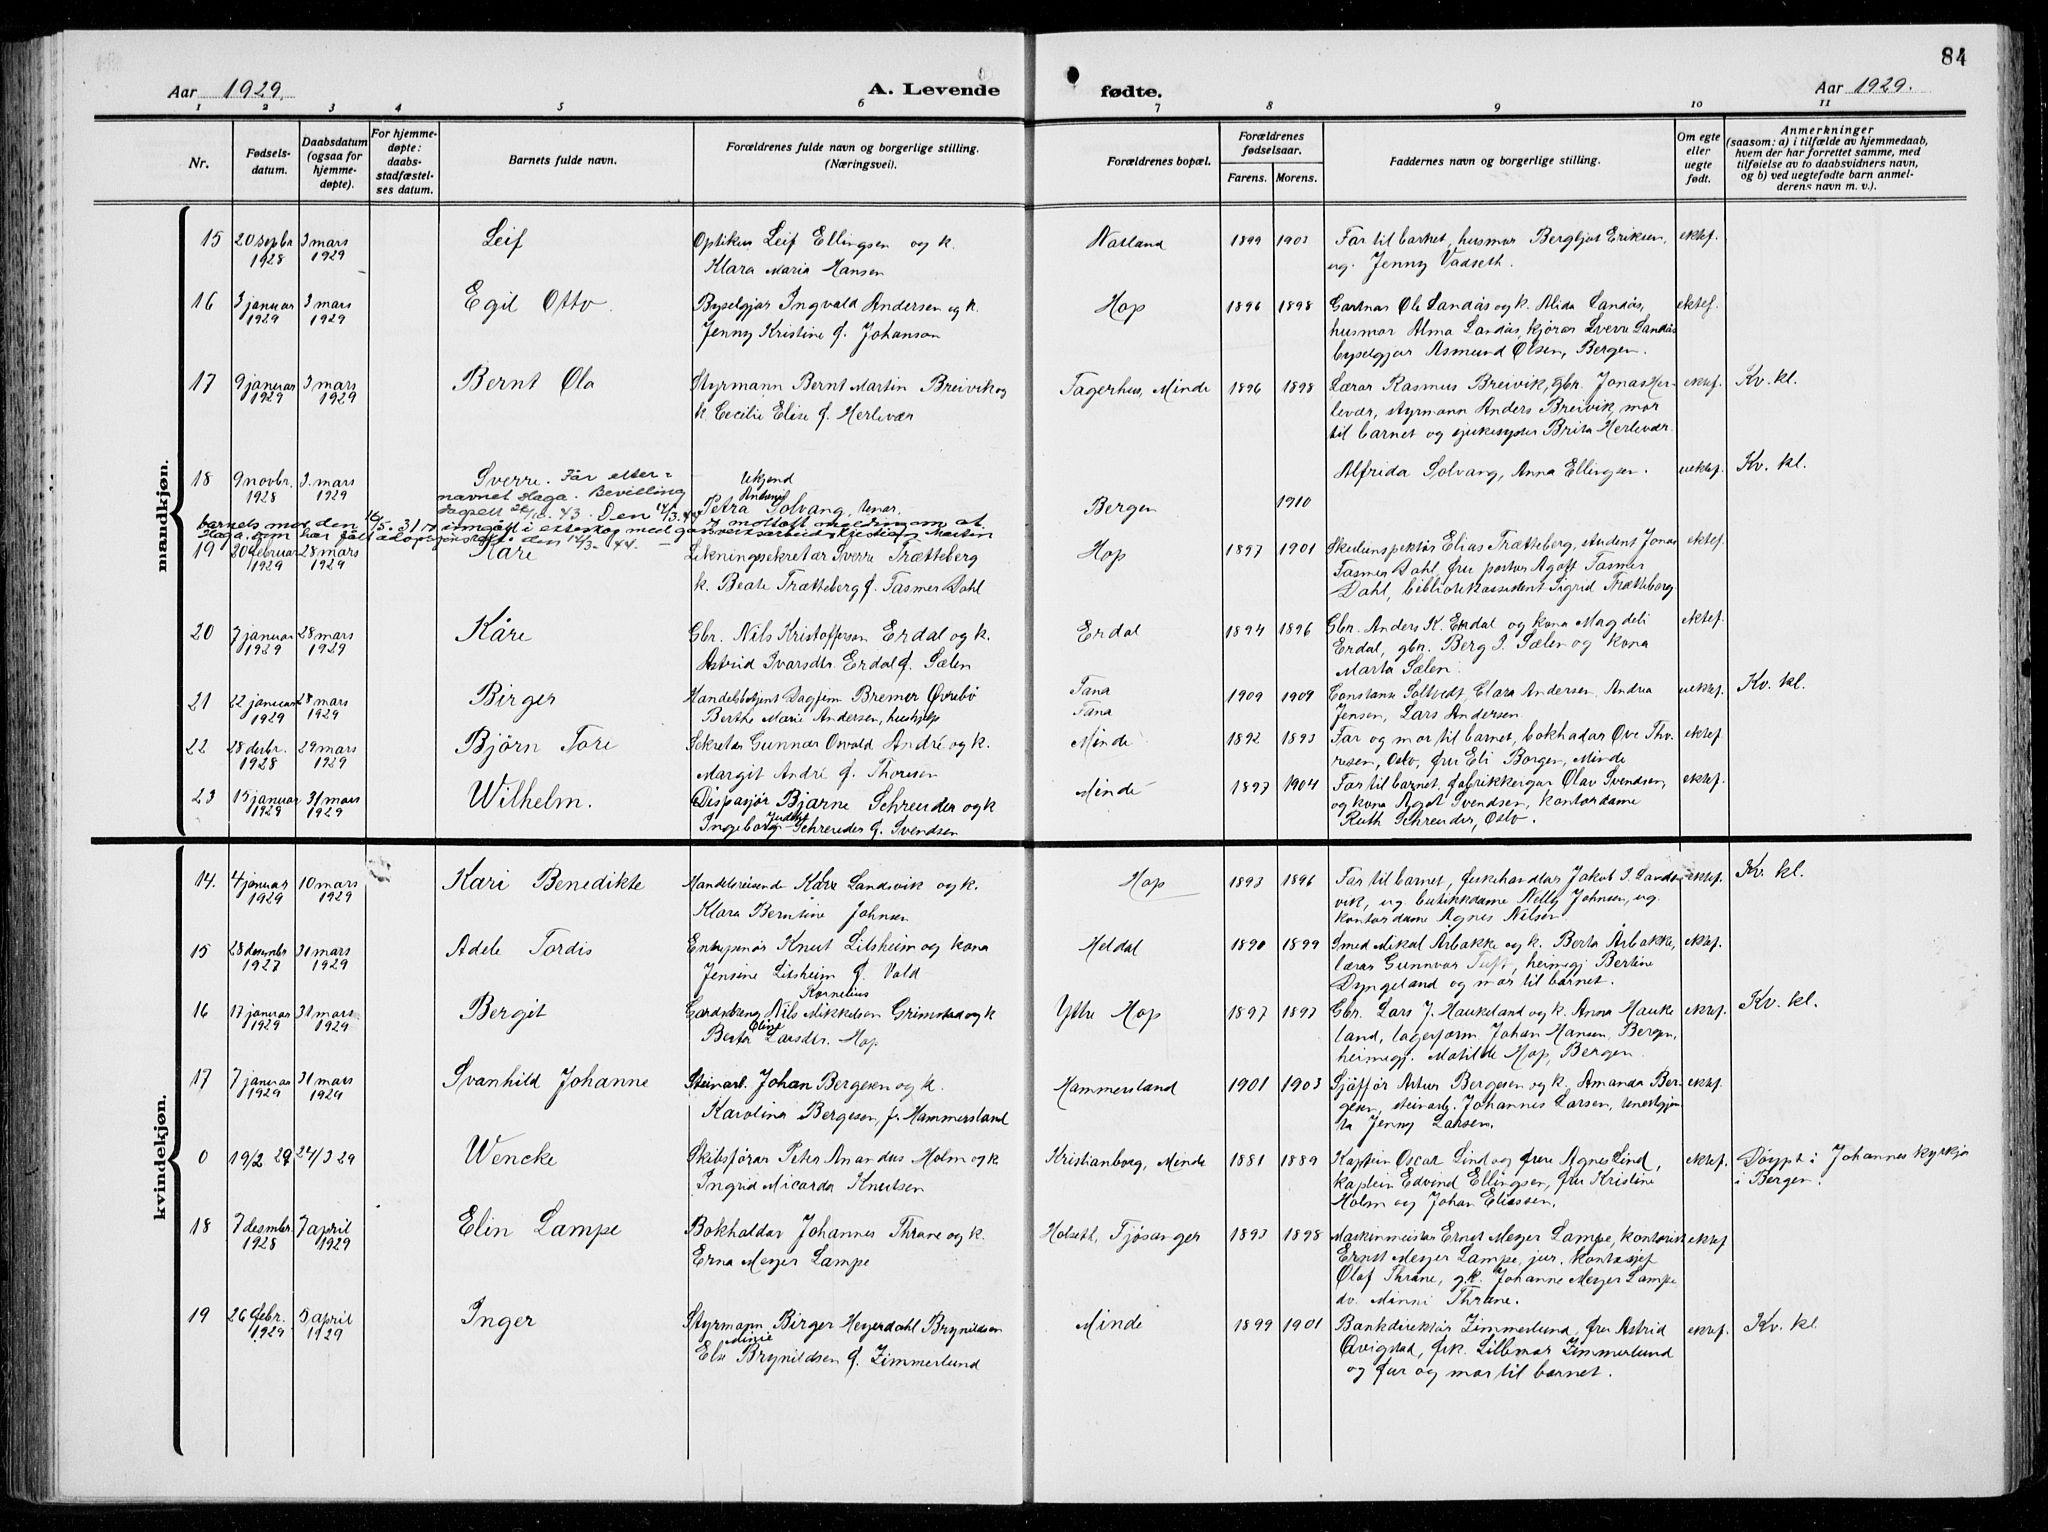 84
Aar 1929. A. Levende fødte. Aar 1929.
1 2 3 4 5 6 7 8 9 10 11
Nr.
Fødselsdatum.
Daabsdatum (ogsaa for hjemmedøpte).
For hjemmedøpte: daabsstadfæstelses datum.
Barnets fulde navn.
Forældrenes fulde navn og borgerlige stilling. (Næringsvei).
Forældrenes bopæl.
Forældrenes fødselsaar.
Farens. Morens.
Faddernes navn og borgerlige stilling.
Om egte eller uegte født.
Anmerkninger
(saasom: a) i tilfælde av hjemmedaab, hvem der har forrettet samme, med tilføielse av to daabsvidners navn, og b) ved uegtefødte barn anmelderens navn m. v.).
mandkjøn.
15 20 septbr 3 mars Leif Optikus Leif Ellingsen og k. Natland 1899 1903 Far til barnet, husmor Bergljot Eriksen, ektef.
1928 1929 Klara Maria Hansen ug. Jenny Vadseth.
16 3 januar 3 mars Egil Otto Byselgjar Ingvald Andersen og k. Hop 1896 1898 Gartnar Ole Landås og k. Alida Landås, ektef.
1929 1929 Jenny Kristine f. Johanson husmor Alma Landås, kjörar Sverre Landås
byselgjar Asmund Olsen, Bergen.
17 9 januar 3 mars Bernt Ola Styrmann Bernt Martin Breivik og Fagerhus, Minde 1896 1898 Lærar Rasmus Breivik, gbr. Jonas Her- ektef. Kv. kl.
1929 1929 k. Cecilie Elise f. Herlevær levær, styrmann Anders Breivik, mor
til barnet og sjukesyster Brita Herlevær.
18 9 novbr. 3. mars Sverre. Får etter- Ukjend Alfrida Solvang, Anna Ellingsen. uektef. Kv. kl.
1928 1929 navnet Haga. Bevilling Petra Solvang, tenar. Bergen 1910
barnets mor den
19 20 februar 28 mars Kåre Likningssekretær Sverre Trætteberg Hop 1897 1901 Skuleinspektør Elias Trætteberg, student Jonas ektef.
1929 1929 k. Beate Trætteberg f. Fasmer Dahl Fasmer Dahl, fru pastor Agott Fasmer
Dahl, bibliotekassistent Sigrid Trætteberg
20 7 januar 28 mars Kåre Gbr. Nils Kristofferson Erdal og k. Erdal 1894 1896 Gbr. Anders K. Erdal og kona Magdeli ektef.
1929 1929 Astrid Ivarsdtr. Erdal f. Sælen Erdal, gbr. Berg I. Sælen og kona
Marta Sælen.
21 22 januar 28 mars Birger Handelsbetjent Dagfinn Bremer Øvrebö Fana 1909 1909 Constanse Soltvedt, Clara Andersen, Andrea uektef. Kv. kl.
1929 1929 Berthe Marie Andersen, hushjelp Fana Jensen, Lars Andersen
22 28 desbr. 29 mars Björn Tore Sekretær Gunnar Osvald André og k. Minde 1892 1893 Far og mor til barnet, bokhaldar Ove Tho- ektef
1928 1929 Margit André f. Thoresen resen, Oslo, fru Eli Borgen, Minde
23 15 januar 31 mars Wilhelm. Dispasjör Bjarne Schreuder og k Minde 1897 1904 Far til barnet, fabrikkeigar Olav Svendsen, ektef
1929 1929 Ingeborg Judith Schreuder f. Svendsen og kona Agot Svendsen, kontordame
Ruth Schreuder, Oslo.
kvindekjøn.
14. 4 januar 10 mars Kari Benedikte Handelsreisende Kåre Landsvik og k. Hop 1893 1896 Far til barnet, fiskehandlar Jakob I. Lands- ektef. Kv. kl.
1929 1929 Klara Berntine Johnsen vik, ug butikkdame Nelly Johnsen, ug.
kontordame Agnes Nilsen
15 28 desember 31 mars Adele Tordis Entrepenör Knut Litsheim og kona Heldal 1890 1899 Smed Mikal Årbakke og k. Berta Årbakke, ektef.
1927 1929 Jensine Litsheim f. Vald lærar Gunnvor Tuft, heimegj Bertine
Dyngeland og mor til barnet.
16 17 januar 31 mars Bergit Gardsbrug. Nils Kornelius Mikkelsen Grimstad og k Ytre Hop 1897 1897 Gbr. Lars J. Haukeland og k. Anna Hauke ektef. Kv. kl.
1929 1929 Berta Eline Larsdtr. Hop land, lagerform. Johan Hansen, Bergen,
heimegj. Matilde Hop, Bergen.
17 7 januar 31 mars Svanhild Johanne Steinarb. Johan Bergesen og k. Hammersland 1901 1903 Sjåffør Artur Bergesen og k. Amanda Ber- ektef
1929 1929 Karolina Bergesen, f. Hammersland gesen, steinarb. Johannes Larsen,
Jenny Larsen.
0 19/2 29 24/3 29 Wencke Skibsförar Peter Anandus Holm og k Kristianborg, Minde 1881 1889 Kaptein Oscar Lind og frue Agnes Lind, ektef. Döypt i Johannes kyrkja
Ingrid Micarda Knutsen kaptein Edvind Ellingsen, fru Kristine i Bergen.
Holm og Johan Eliassen.
18 7 desmbr. 7 april Elin Lampe Bokhaldar Johannes Thrane og k. Holseth, Fjösanger 1893 1898 Maskinmeister Ernst Meyer Lampe, kontorist ektef
1928 1929 Erna Meyer Lampe Ernst Meyer Lampe, jur. kontorsjef
Olaf Thrane, g.k. Johanne Meyer Lampe
Minni Thrane.
19 26 febr. 5 april Inger Styrmann Birger Heyerdahl Brynildsen Minde 1899 1901 Bankdirektör Zimmerlund, fru Astrid ektef. Kv. kl.
1929 1929 Else Minie Brynildsen f. Zimmerlund Qvigstad, frk. Lillemor Zimmerlund
og far og mor til barnet.